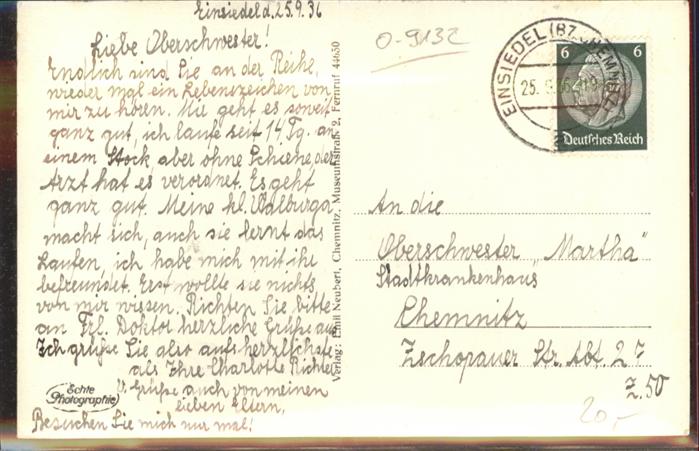 Einsiedel d. 25.9.36
Liebe Oberschwester!
Endlich sind Sie an der Reihe,
wieder mal ein Lebenszeichen von
mir zu hören. Mir geht es soweit
ganz gut, ich laufe seit 14 Tg. an
einem Stock aber ohne Schiene, der
Arzt hat es verordnet. Es geht
ganz gut. Meine kl. Walburga
macht sich, auch sie lernt das
Laufen, ich habe mich mit ihr
befreundet. Erst wollte sie nichts
von mir wissen. Richten Sie bitte
an Frl. Doktor herzliche Grüße aus
Ich grüße Sie also aufs herzlichste
als Ihre Charlotte Richter
U. Grüße auch von meinen
lieben Eltern.
Besuchen Sie mich nur mal!
Echte
Photographie
Verlag: Emil Neubert, Chemnitz, Museumstraße 2, Fernruf 44630
0-9132
EINSIEDEL (BZ. CHEMNITZ)
25.9.36
6 6
Deutsches Reich
An die
Oberschwester „Martha"
Stadtkrankenhaus
Chemnitz
Zschopauer Str. Abt. 27
Z. 50
20,-